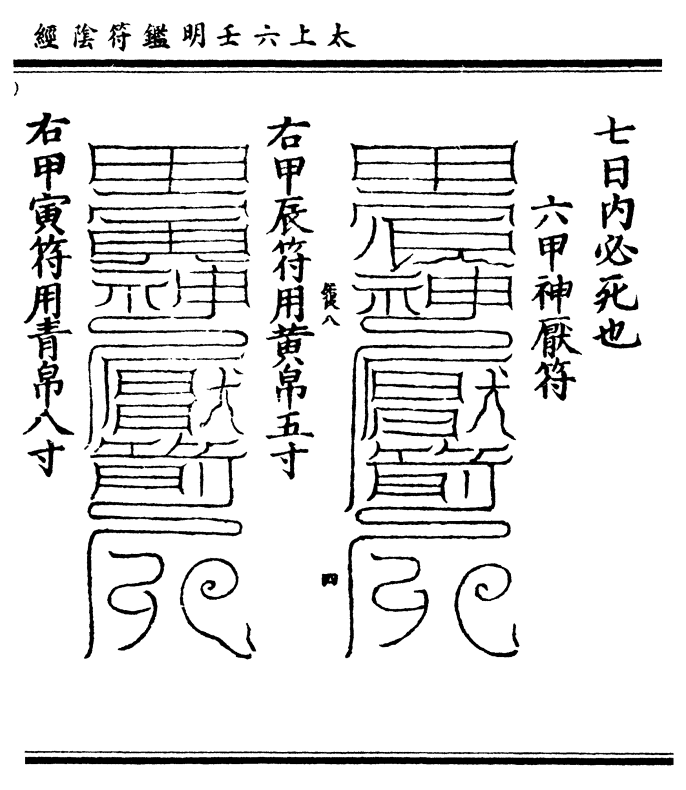 太上六壬明鑑符陰經
七日内必死也
六甲神厭符
右甲辰符用黄帛五寸
四
右甲寅符用青帛八寸